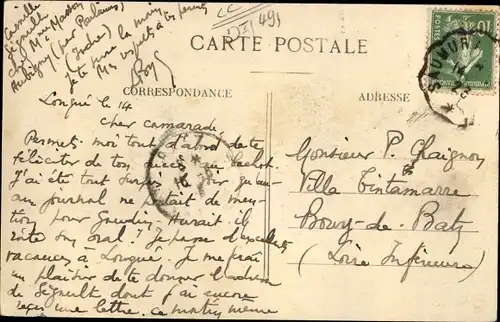 Camille
Segnult
chez Mme Marton
Aubigny (par Paulaines)
(Indre)
Je te serre la main
Mes respects à tes parents
CARTE POSTALE
CORRESPONDANCE
ADRESSE
SAUMUR
Longué le 14
cher camarade,
Permets moi tout d'abord de te
féliciter de ton succès au bachot.
J'ai été tout surpris de voir qu'au
au journal ne portait de men-
tion pour Gaudin. Aurait-il
raté son oral? Je passe d'excellentes
vacances à Longué. Je me fais
un plaisir de te donner l'adresse
de Segnult dont j'ai encore
reçu une lettre. ce matin même
Monsieur P. Chaignon
Villa Tintamarre
Bourg-de-Batz
(Loire Inférieure)